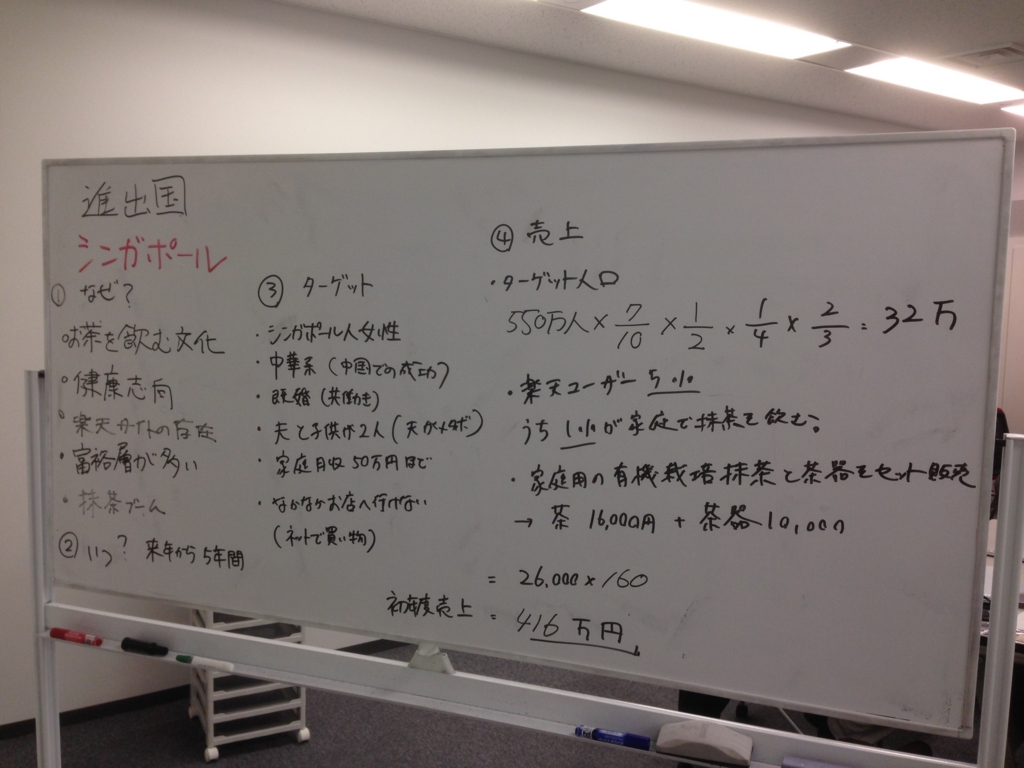 進出国
シンガポール
① なぜ?
・お茶を飲む文化
・健康志向
・楽天サイトの存在
・富裕層が多い
・抹茶ブーム
② いつ? 来年から5年間
③ ターゲット
・シンガポール人女性
・中華系(中国での成功)
・既婚(共働き)
・夫と子供が2人(夫がメタボ)
・家庭月収50万円ほど
・なかなかお店へ行けない
(ネットで買い物)
④ 売上
・ターゲット人口
550万人 × 7/10 × 1/2 × 1/4 × 2/3 = 32万
・楽天ユーザー 5%
うち 1%が家庭で抹茶を飲む。
・家庭用の有機栽培抹茶と茶器をセット販売
→ 茶 16,000円 + 茶器 10,000
= 26,000×160
初年度売上 = 416万円